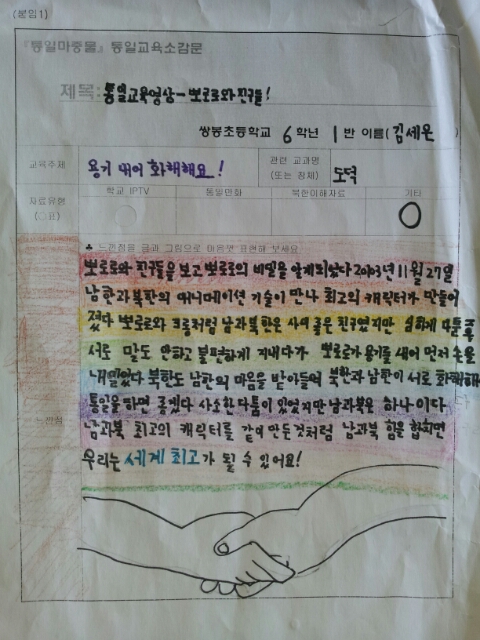 (붙임1)
『통일마중물』 통일교육소감문
제목: 통일교육영상-뽀로로와 친구들!
쌍봉초등학교 6학년 1반 이름(김세은)
교육주제 용기 내어 화해해요! 관련 교과명 (또는 창체) 도덕
자료유형 (○표) 학교 IPTV 통일만화 북한이해자료 기타
○
♣ 느낀점을 글과 그림으로 마음껏 표현해 보세요
뽀로로와 친구들을 보고 뽀로로의 비밀을 알게되었다 2003년 11월 27일
남한과 북한의 애니메이션 기술이 만나 최고의 캐릭터가 만들어
졌다 뽀로로와 크롱처럼 남과북한은 사이 좋은 친구였지만 심하게 다툰후
서로 말도 안하고 불편하게 지내다가 뽀로로가 용기를 내어 먼저 손을
내밀었다 북한도 남한의 마음을 받아들여 북한과 남한이 서로 화해해
통일을 하면 좋겠다 사소한 다툼이 있었지만 남과북은 하나이다
남과북 최고의 캐릭터를 같이 만든것처럼 남과북 힘을 합치면
우리는 세계 최고가 될 수 있어요!